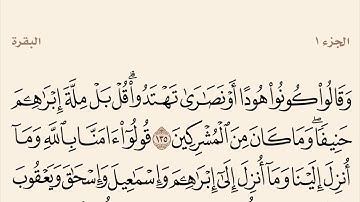 الجزء ١
البقرة
وَقَالُوا۟ كُونُوا۟ هُودًا أَوْ نَصَـٰرَىٰ تَهْتَدُوا۟ ۗ قُلْ بَلْ مِلَّةَ إِبْرَٰهِـۧمَ
حَنِيفًا ۖ وَمَا كَانَ مِنَ ٱلْمُشْرِكِينَ ١٣٥ قُولُوٓا۟ ءَامَنَّا بِٱللَّهِ وَمَآ
أُنزِلَ إِلَيْنَا وَمَآ أُنزِلَ إِلَىٰٓ إِبْرَٰهِـۧمَ وَإِسْمَـٰعِيلَ وَإِسْحَـٰقَ وَيَعْقُوبَ